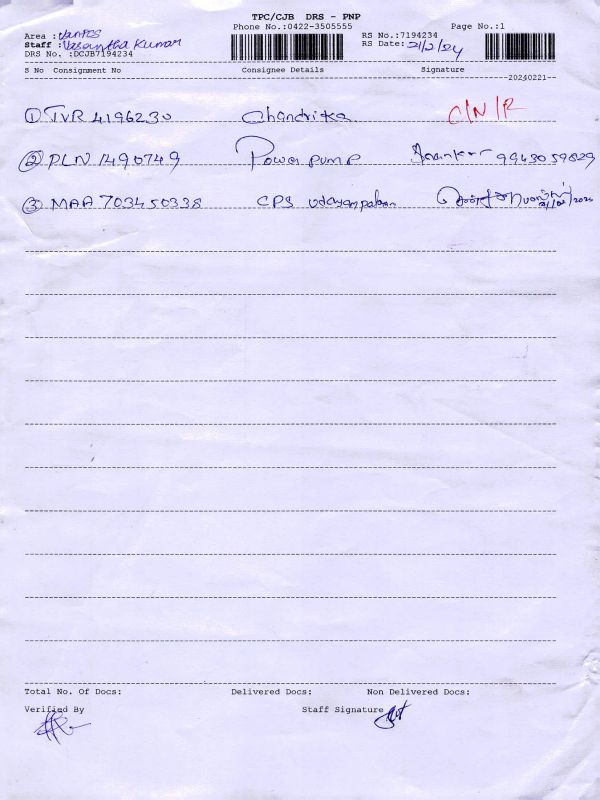 TPC/CJB DRS - PNP
Phone No.:0422-3505555
RS No.:7194234
Page No.:1
Area :
Staff : Vasantha Kumar
RS Date: 21/2/24
DRS No. :DCJB7194234
S No Consignment No Consignee Details Signature
20240221
① TVR 4196230 Chandrika C/N/R
② PLN 1490749 Power pump 9943059829
③ MAA 703450338 CPS udayanpalan
Total No. Of Docs: Delivered Docs: Non Delivered Docs:
Verified By Staff Signature